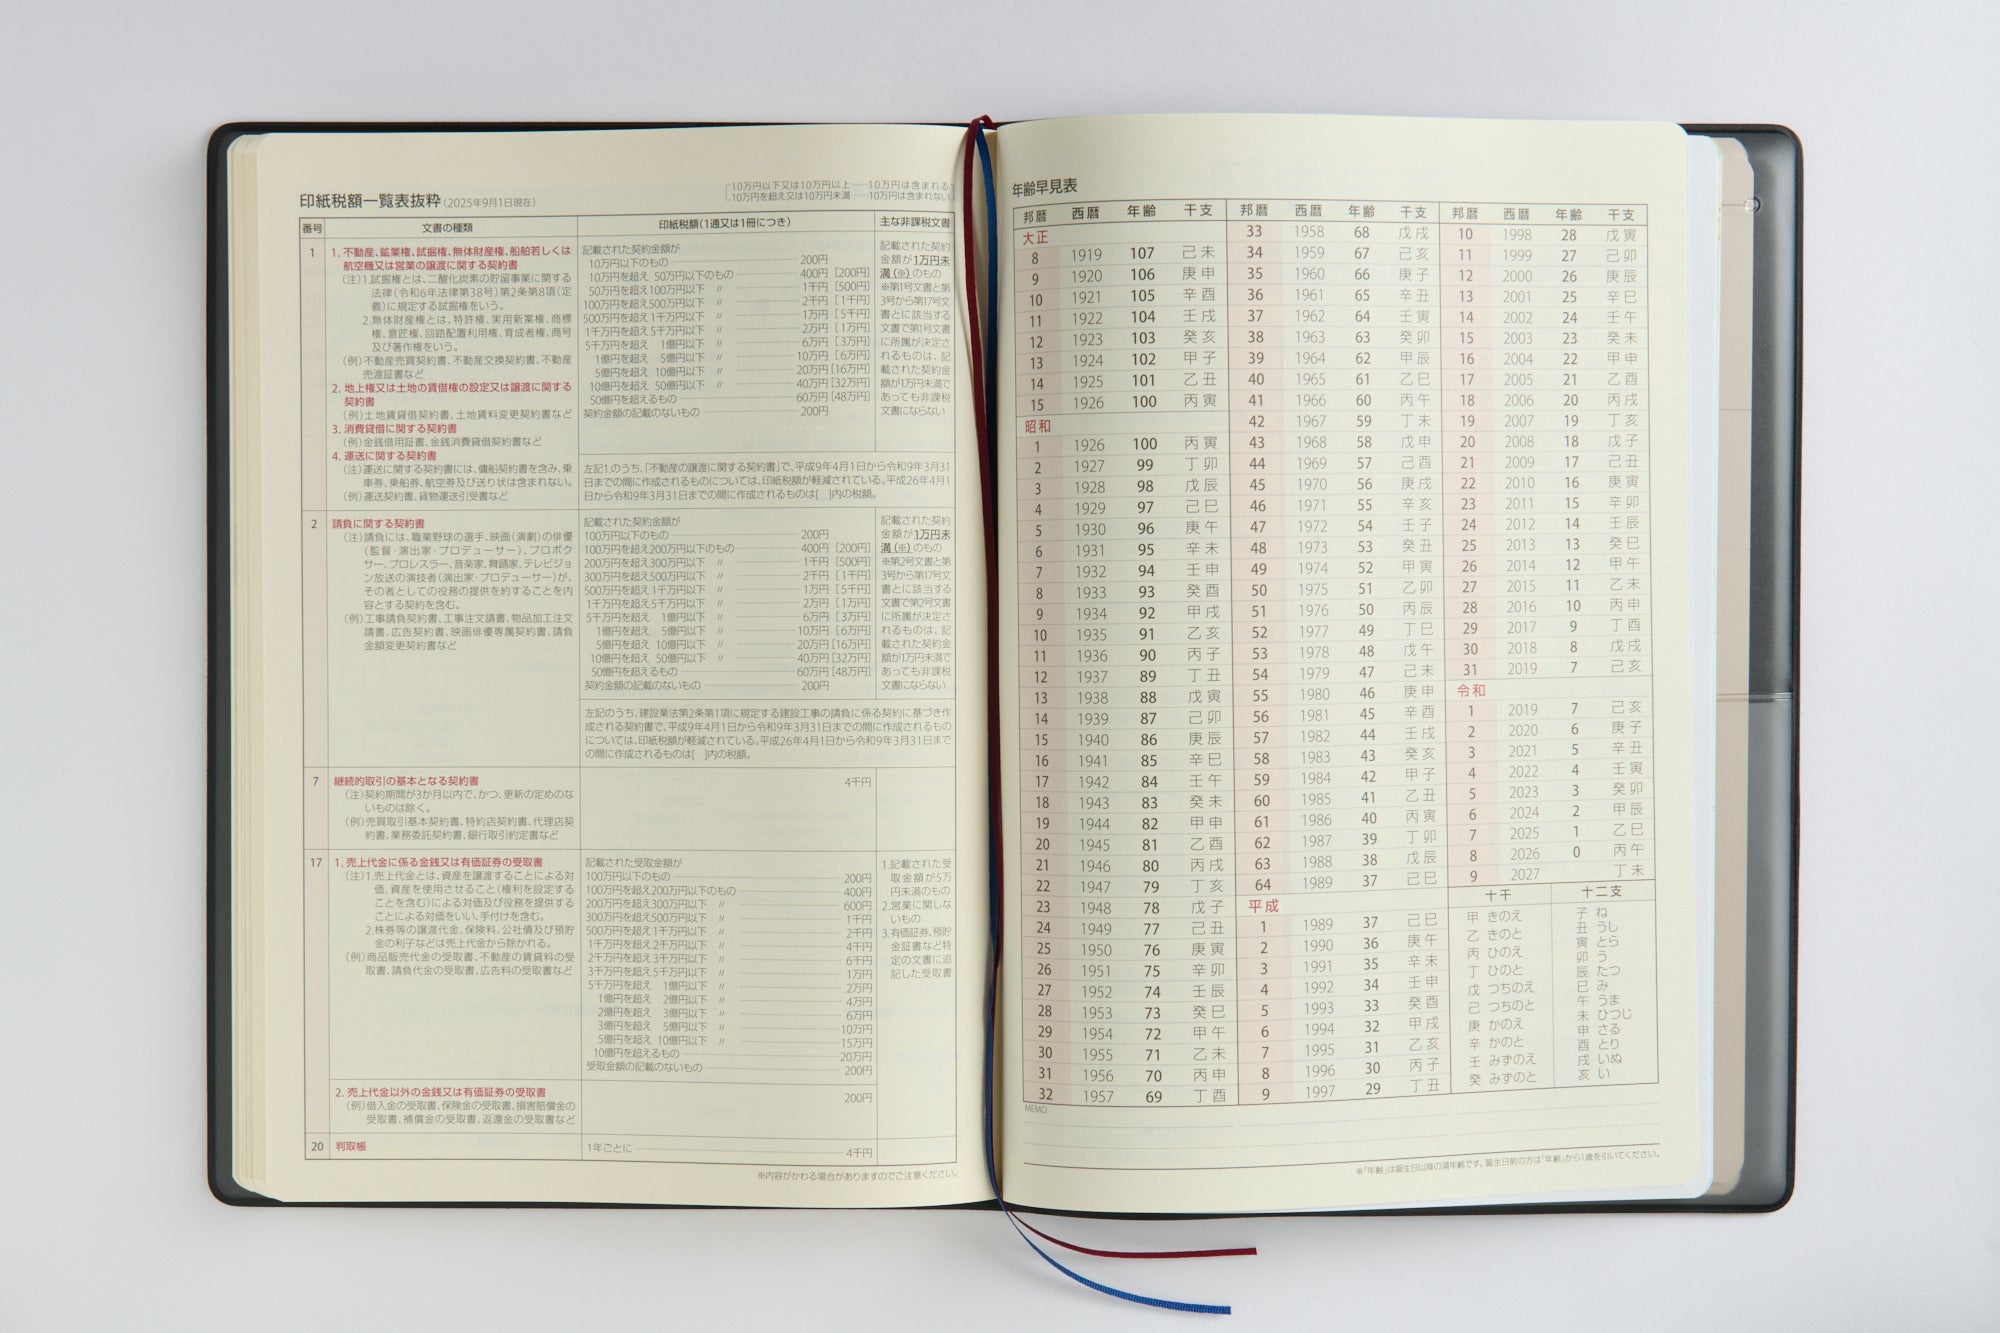 印紙税額一覧表抜粋(2025年9月1日現在)
10万円以下又は10万円以上……10万円は含まれる
10万円を超え又は10万円未満……10万円は含まれない
番号 文書の種類 印紙税額(1通又は1冊につき) 主な非課税文書
1
1. 不動産、鉱業権、試掘権、無体財産権、船舶若しくは
航空機又は営業の譲渡に関する契約書
(注)1.試掘権とは、二酸化炭素の貯留事業に関する
法律(令和6年法律第38号)第2条第8項(定
義)に規定する試掘権をいう。
2.無体財産権とは、特許権、実用新案権、商標
権、意匠権、回路配置利用権、育成者権、商号
及び著作権をいう。
(例)不動産売買契約書、不動産交換契約書、不動産
売渡証書など
2. 地上権又は土地の賃借権の設定又は譲渡に関する
契約書
(例)土地賃貸借契約書、土地賃料変更契約書など
3. 消費貸借に関する契約書
(例)金銭借用証書、金銭消費貸借契約書など
4. 運送に関する契約書
(注)運送に関する契約書には、傭船契約書を含み、乗
車券、乗船券、航空券及び送り状は含まれない。
(例)運送契約書、貨物運送引受書など
記載された契約金額が
10万円以下のもの 200円
10万円を超え 50万円以下のもの 400円 [200円]
50万円を超え100万円以下 〃 1千円 [500円]
100万円を超え500万円以下 〃 2千円 [1千円]
500万円を超え1千万円以下 〃 1万円 [5千円]
1千万円を超え5千万円以下 〃 2万円 [1万円]
5千万円を超え 1億円以下 〃 6万円 [3万円]
1億円を超え 5億円以下 〃 10万円 [6万円]
5億円を超え 10億円以下 〃 20万円 [16万円]
10億円を超え 50億円以下 〃 40万円 [32万円]
50億円を超えるもの 60万円 [48万円]
契約金額の記載のないもの 200円
記載された契約
金額が1万円未
満(※)のもの
※第1号文書と第
3号から第17号文
書とに該当する
文書で第1号文書
に所属が決定さ
れるものは、記
載された契約金
額が1万円未満で
あっても非課税
文書にならない
左記1.のうち、「不動産の譲渡に関する契約書」で、平成9年4月1日から令和9年3月31
日までの間に作成されるものについては、印紙税額が軽減されている。平成26年4月1
日から令和9年3月31日までの間に作成されるものは[ ]内の税額。
2
請負に関する契約書
(注)請負には、職業野球の選手、映画(演劇)の俳優
(監督・演出家・プロデューサー)、プロボク
サー、プロレスラー、音楽家、舞踊家、テレビジョ
ン放送の演技者(演出家・プロデューサー)が、
その者としての役務の提供を約することを内
容とする契約を含む。
(例)工事請負契約書、工事注文請書、物品加工注文
請書、広告契約書、映画俳優専属契約書、請負
金額変更契約書など
記載された契約金額が
100万円以下のもの 200円
100万円を超え200万円以下のもの 400円 [200円]
200万円を超え300万円以下 〃 1千円 [500円]
300万円を超え500万円以下 〃 2千円 [1千円]
500万円を超え1千万円以下 〃 1万円 [5千円]
1千万円を超え5千万円以下 〃 2万円 [1万円]
5千万円を超え 1億円以下 〃 6万円 [3万円]
1億円を超え 5億円以下 〃 10万円 [6万円]
5億円を超え 10億円以下 〃 20万円 [16万円]
10億円を超え 50億円以下 〃 40万円 [32万円]
50億円を超えるもの 60万円 [48万円]
契約金額の記載のないもの 200円
記載された契約
金額が1万円未
満(※)のもの
※第2号文書と第
3号から第17号文
書とに該当する
文書で第2号文書
に所属が決定さ
れるものは、記
載された契約金
額が1万円未満で
あっても非課税
文書にならない
左記のうち、建設業法第2条第1項に規定する建設工事の請負に係る契約に基づき作
成される契約書で、平成9年4月1日から令和9年3月31日までの間に作成されるもの
については、印紙税額が軽減されている。平成26年4月1日から令和9年3月31日まで
の間に作成されるものは[ ]内の税額。
7
継続的取引の基本となる契約書
(注)契約期間が3か月以内で、かつ、更新の定めのな
いものは除く。
(例)売買取引基本契約書、特約店契約書、代理店契
約書、業務委託契約書、銀行取引約定書など
4千円
17
1. 売上代金に係る金銭又は有価証券の受取書
(注)1.売上代金とは、資産を譲渡することによる対
価、資産を使用させること(権利を設定する
ことを含む)による対価及び役務を提供する
ことによる対価をいい、手付けを含む。
2.株券等の譲渡代金、保険料、公社債及び預貯
金の利子などは売上代金から除かれる。
(例)商品販売代金の受取書、不動産の賃貸料の受
取書、請負代金の受取書、広告料の受取書など
記載された受取金額が
100万円以下のもの 200円
100万円を超え200万円以下のもの 400円
200万円を超え300万円以下 〃 600円
300万円を超え500万円以下 〃 1千円
500万円を超え1千万円以下 〃 2千円
1千万円を超え2千万円以下 〃 4千円
2千万円を超え3千万円以下 〃 6千円
3千万円を超え5千万円以下 〃 1万円
5千万円を超え 1億円以下 〃 2万円
1億円を超え 2億円以下 〃 4万円
2億円を超え 3億円以下 〃 6万円
3億円を超え 5億円以下 〃 10万円
5億円を超え 10億円以下 〃 15万円
10億円を超えるもの 20万円
受取金額の記載のないもの 200円
1.記載された受
取金額が5万
円未満のもの
2.営業に関しな
いもの
3.有価証券、預貯
金証書など特
定の文書に追
記した受取書
2. 売上代金以外の金銭又は有価証券の受取書
(例)借入金の受取書、保険金の受取書、損害賠償金の
受取書、補償金の受取書、返還金の受取書など
200円
20 判取帳 1年ごとに 4千円
※内容がかわる場合がありますのでご注意ください。
年齢早見表
邦暦 西暦 年齢 干支
大正
8 1919 107 己未
9 1920 106 庚申
10 1921 105 辛酉
11 1922 104 壬戌
12 1923 103 癸亥
13 1924 102 甲子
14 1925 101 乙丑
15 1926 100 丙寅
昭和
1 1926 100 丙寅
2 1927 99 丁卯
3 1928 98 戊辰
4 1929 97 己巳
5 1930 96 庚午
6 1931 95 辛未
7 1932 94 壬申
8 1933 93 癸酉
9 1934 92 甲戌
10 1935 91 乙亥
11 1936 90 丙子
12 1937 89 丁丑
13 1938 88 戊寅
14 1939 87 己卯
15 1940 86 庚辰
16 1941 85 辛巳
17 1942 84 壬午
18 1943 83 癸未
19 1944 82 甲申
20 1945 81 乙酉
21 1946 80 丙戌
22 1947 79 丁亥
23 1948 78 戊子
24 1949 77 己丑
25 1950 76 庚寅
26 1951 75 辛卯
27 1952 74 壬辰
28 1953 73 癸巳
29 1954 72 甲午
30 1955 71 乙未
31 1956 70 丙申
32 1957 69 丁酉
邦暦 西暦 年齢 干支
33 1958 68 戊戌
34 1959 67 己亥
35 1960 66 庚子
36 1961 65 辛丑
37 1962 64 壬寅
38 1963 63 癸卯
39 1964 62 甲辰
40 1965 61 乙巳
41 1966 60 丙午
42 1967 59 丁未
43 1968 58 戊申
44 1969 57 己酉
45 1970 56 庚戌
46 1971 55 辛亥
47 1972 54 壬子
48 1973 53 癸丑
49 1974 52 甲寅
50 1975 51 乙卯
51 1976 50 丙辰
52 1977 49 丁巳
53 1978 48 戊午
54 1979 47 己未
55 1980 46 庚申
56 1981 45 辛酉
57 1982 44 壬戌
58 1983 43 癸亥
59 1984 42 甲子
60 1985 41 乙丑
61 1986 40 丙寅
62 1987 39 丁卯
63 1988 38 戊辰
64 1989 37 己巳
平成
1 1989 37 己巳
2 1990 36 庚午
3 1991 35 辛未
4 1992 34 壬申
5 1993 33 癸酉
6 1994 32 甲戌
7 1995 31 乙亥
8 1996 30 丙子
9 1997 29 丁丑
邦暦 西暦 年齢 干支
10 1998 28 戊寅
11 1999 27 己卯
12 2000 26 庚辰
13 2001 25 辛巳
14 2002 24 壬午
15 2003 23 癸未
16 2004 22 甲申
17 2005 21 乙酉
18 2006 20 丙戌
19 2007 19 丁亥
20 2008 18 戊子
21 2009 17 己丑
22 2010 16 庚寅
23 2011 15 辛卯
24 2012 14 壬辰
25 2013 13 癸巳
26 2014 12 甲午
27 2015 11 乙未
28 2016 10 丙申
29 2017 9 丁酉
30 2018 8 戊戌
31 2019 7 己亥
令和
1 2019 7 己亥
2 2020 6 庚子
3 2021 5 辛丑
4 2022 4 壬寅
5 2023 3 癸卯
6 2024 2 甲辰
7 2025 1 乙巳
8 2026 0 丙午
9 2027 丁未
十干
甲 きのえ
乙 きのと
丙 ひのえ
丁 ひのと
戊 つちのえ
己 つちのと
庚 かのえ
辛 かのと
壬 みずのえ
癸 みずのと
十二支
子 ね
丑 うし
寅 とら
卯 う
辰 たつ
巳 み
午 うま
未 ひつじ
申 さる
酉 とり
戌 いぬ
亥 い
MEMO
※「年齢」は誕生日以降の満年齢です。誕生日前の方は「年齢」から1歳を引いてください。